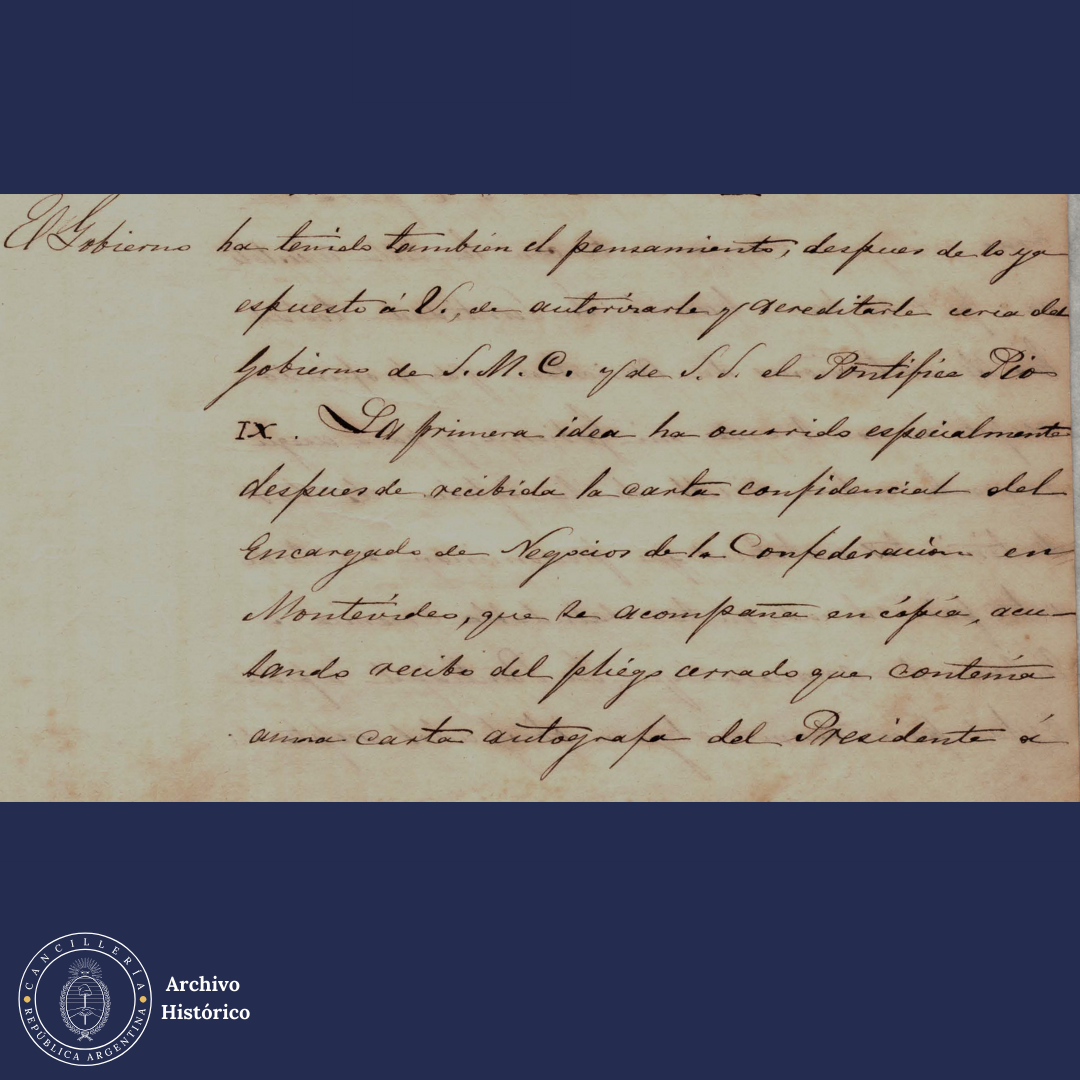 El Gobierno ha tenido también el pensamiento, despues de lo ya
espuesto á V., de autorizarle y acreditarle cerca del
Gobierno de S. M. C. y de S. S. el Pontifice Pio
IX. La primera idea ha ocurrido especialmente
despues de recibida la carta confidencial del
Encargado de Negocios de la Confederacion en
Montevideo, que se acompaña en cópia, acu-
sando recibo del pliégo cerrado que contenia
una carta autografa del Presidente á
CANCILLERÍA
REPÚBLICA ARGENTINA
Archivo
Histórico